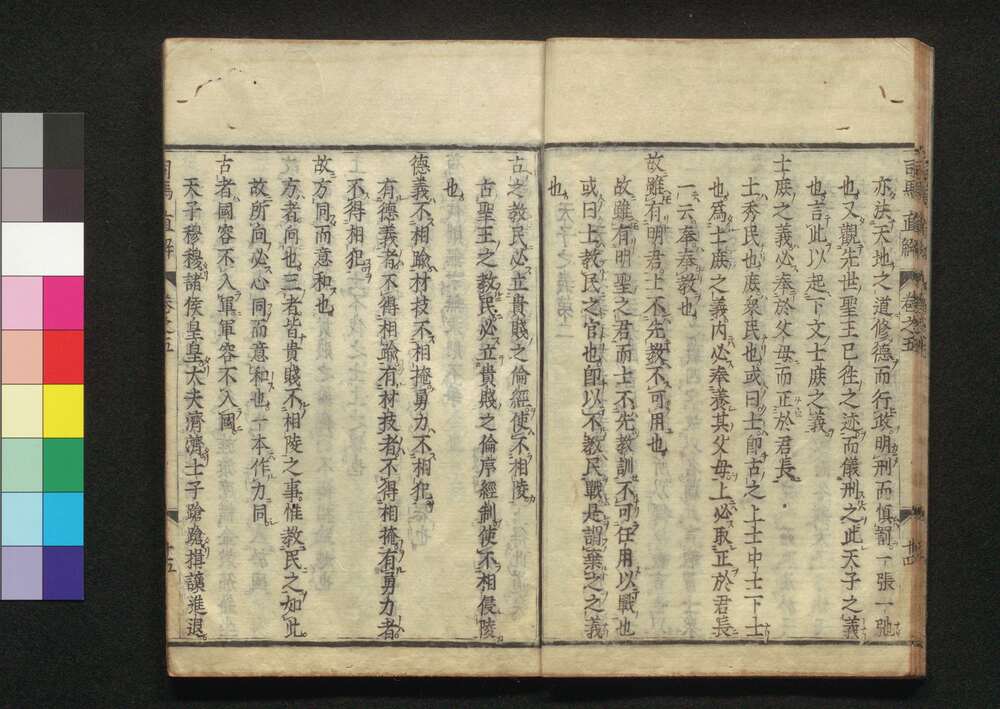 司馬直解 卷之五 廿四
亦法天地之道修德而行政明刑而慎罰一張一弛
也又觀先世聖王已徃之迹而儀刑之此天子之義
也言此以起下文士庻之義
士庻之義必奉於父母而正於君長
士秀民也庻衆民也或曰士卽古之上士中士下士
也爲士庻之義内必奉養其父母上必取正於君長
一云奉奉教也
故雖有明君士不先教不可用也
故雖有明聖之君而士不先教訓不可任用以戰也
或曰士教民之官也卽以不教民戰是謂棄之之義
也
古之教民必立貴賤之倫經使不相陵
古聖王之教民必立貴賤之倫序經制使不相侵陵
也
德義不相踰材技不相掩勇力不相犯
有德義者不得相踰有材技者不得相掩有勇力者
不得相犯
故方同而意和也
方者向也三者皆貴賤不相陵之事惟教民之如此
故所向必心同而意和也一本作力同
古者國容不入軍軍容不入國
天子穆穆諸侯皇皇大夫濟濟士子蹌蹌揖讓進退
司馬直解 卷之五 廿五